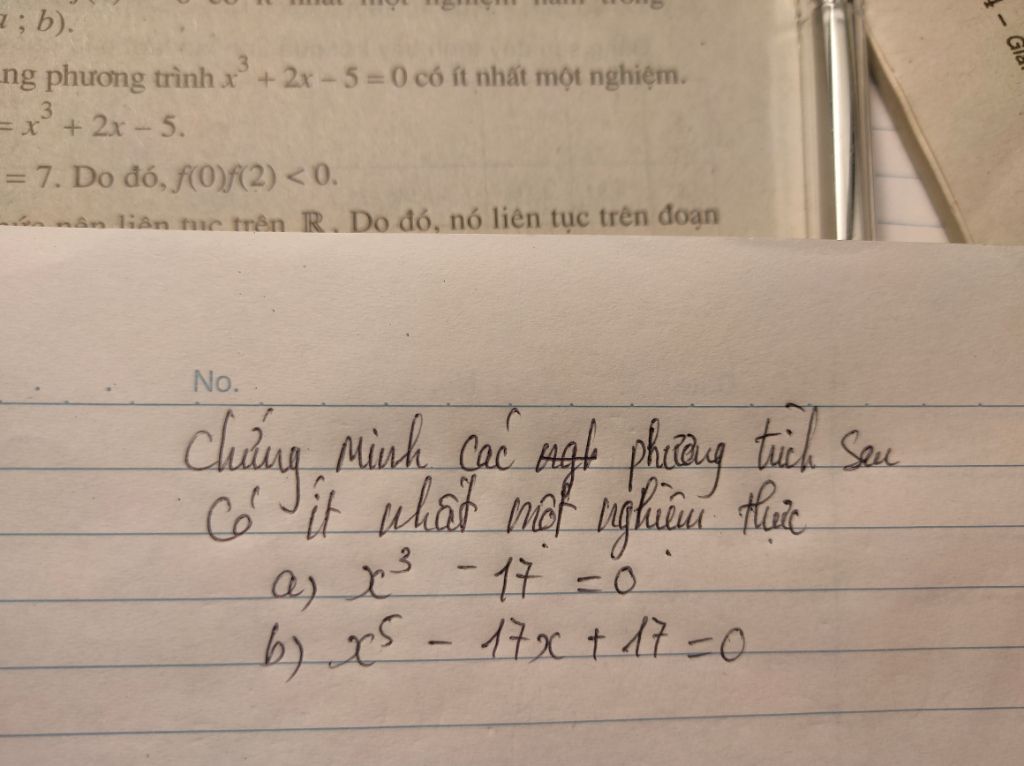 ; b).
ng phương trình x³ + 2x – 5 = 0 có ít nhất một nghiệm.
= x³ + 2x – 5.
= 7. Do đó, f(0)f(2) < 0.
nên liên tục trên ℝ. Do đó, nó liên tục trên đoạn
No.
Chứng minh các phương trình sau
Có ít nhất một nghiệm thực
a) x³ - 17 = 0
b) x⁵ - 17x + 17 = 0